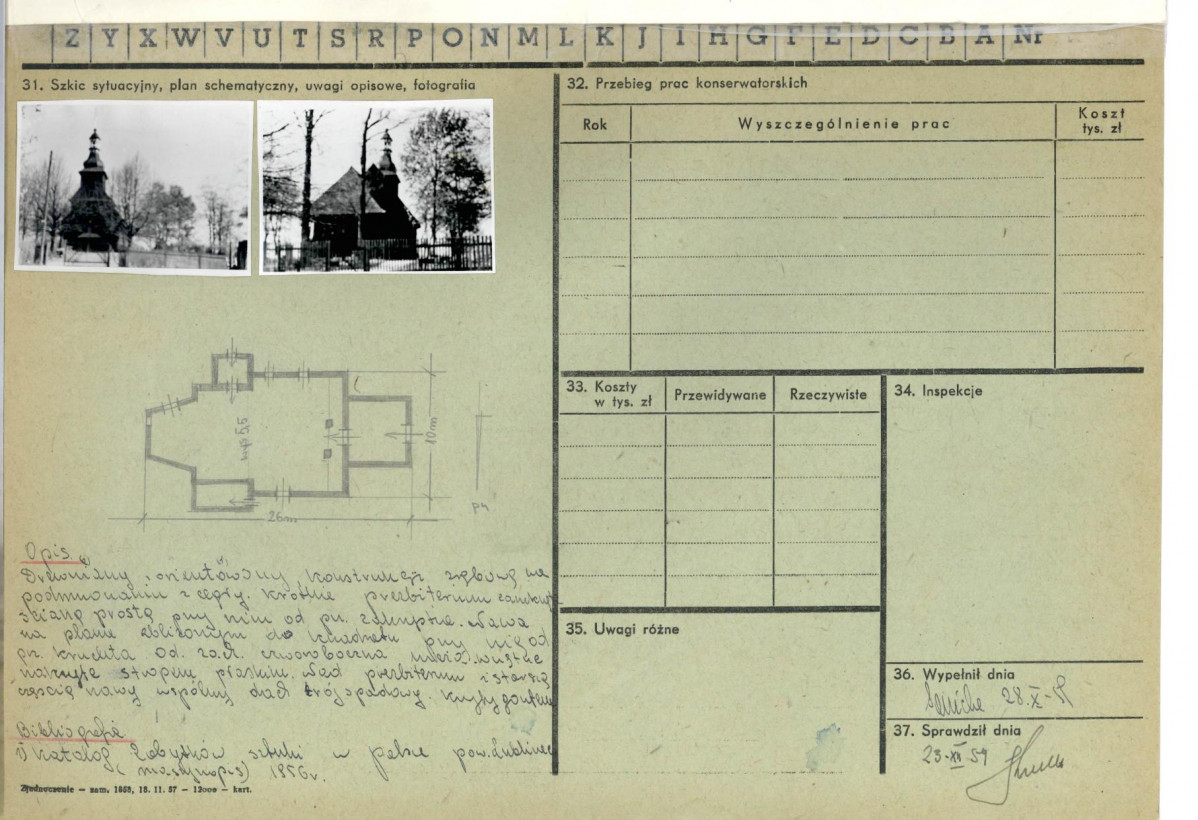 Z Y X W V U T S R P O N M L K J I H G F E D C B A Nr
31. Szkic sytuacyjny, plan schematyczny, uwagi opisowe, fotografia
10m
26m
Opis
Drewniany, orientowany, konstrukcji zrębowej na
podmurowaniu z cegły. Krótkie prezbiterium zamknięte
ścianą prostą przy nim od pn. zakrystia. Nawa
na planie zbliżonym do kwadratu przy niej od
pn. kruchta od zach. czworoboczna wieża. Wnętrze
nakryte stropem płaskim. Nad prezbiterium i starszą
częścią nawy wspólny dach trójspadowy. Kryty gontem
Bibliografia
1) Katalog Zabytków sztuki w Polsce pow. Lubliniec
(maszynopis) 1956r.
Zjednoczenie — zam. 1958, 18. 11. 57 — 12000 — kart.
32. Przebieg prac konserwatorskich
Rok
Wyszczególnienie prac
Koszt
tys. zł
33. Koszty
w tys. zł
Przewidywane
Rzeczywiste
34. Inspekcje
35. Uwagi różne
36. Wypełnił dnia
28.X-59
37. Sprawdził dnia
23-XI 59